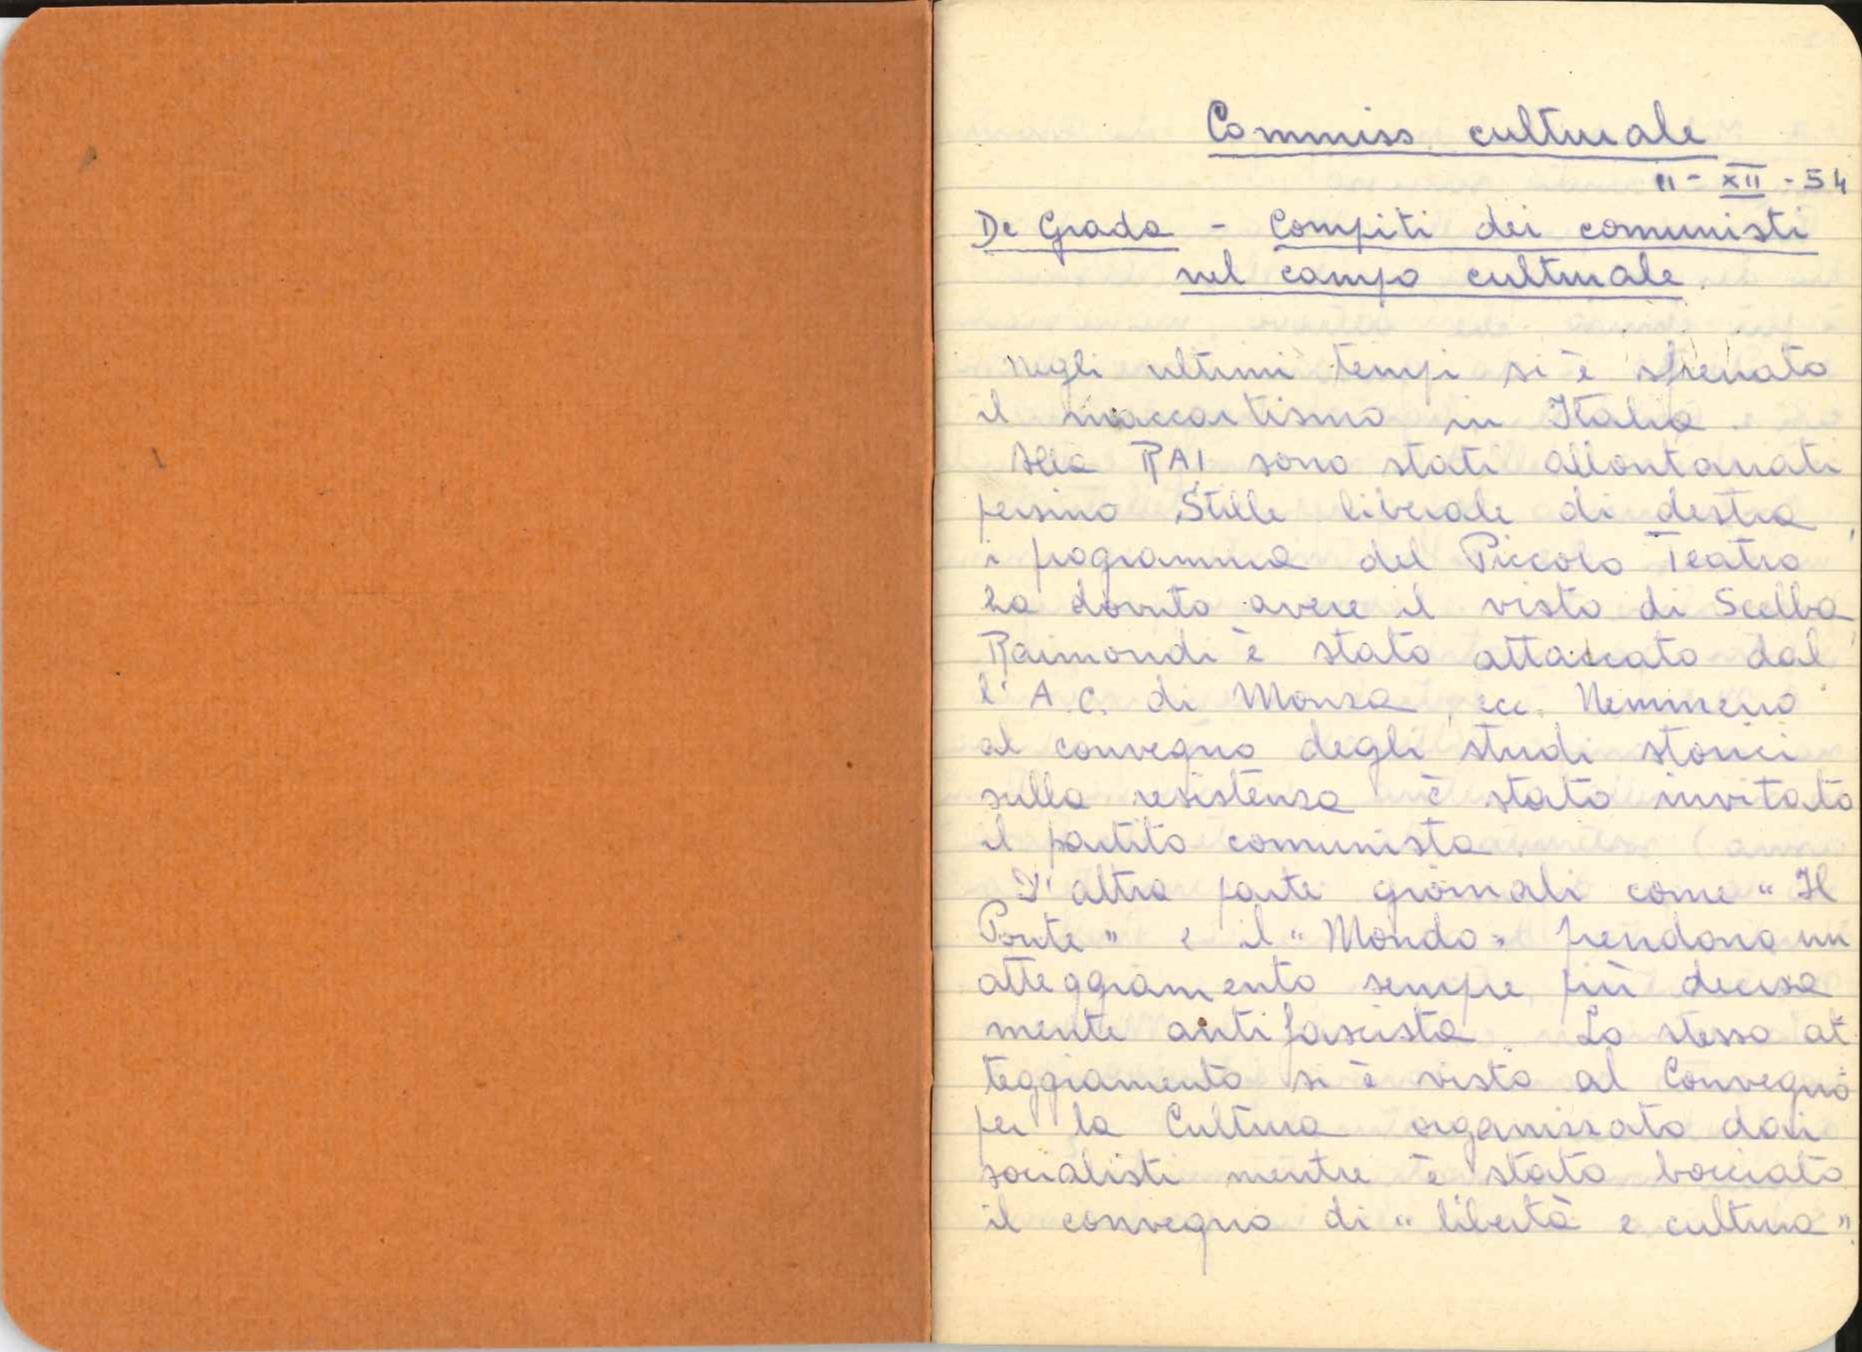 Commiss. culturale
11 - XII - 54
De Grada - Compiti dei comunisti
nel campo culturale.
Negli ultimi tempi si è sfrenato
il maccartismo in Italia.
Alla RAI sono stati allontanati
persino Stille liberale di destra,
i programma del Piccolo Teatro
ha dovuto avere il visto di Scelba,
Raimondi è stato attaccato dal
l'A.C. di Monza, ecc. Nemmeno
al convegno degli studi storici
sulla resistenza è stato invitato
il partito comunista.
D'altra parte giornali come "Il
Ponte" e il "Mondo" prendono un
atteggiamento sempre più decisa
mente antifascista. Lo stesso at
teggiamento si è visto al Convegno
per la Cultura organizzato dai
socialisti mentre è stato bocciato
il convegno di "libertà e cultura".